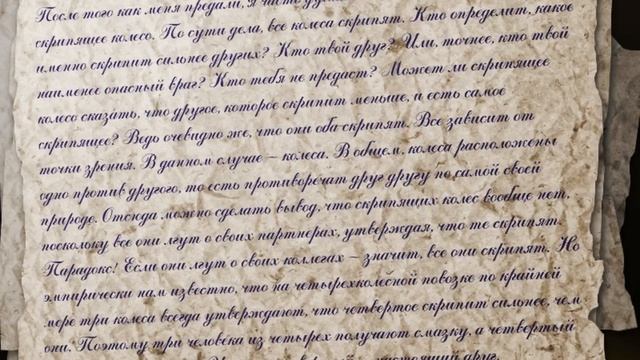 После того как меня предали, я часто
скрипящее колесо. По сути дела, все колеса скрипят. Кто определит, какое
именно скрипит сильнее других? Кто твой друг? Или, точнее, кто твой
наименее опасный враг? Кто тебя не предаст? Может ли скрипящее
колесо сказать, что другое, которое скрипит меньше, и есть самое
скрипящее? Ведь очевидно же, что они оба скрипят. Все зависит от
точки зрения. В данном случае – колеса. В общем, колеса расположены
одно против другого, то есть противоречат друг другу по самой своей
природе. Отсюда можно сделать вывод, что скрипящих колес вообще нет,
поскольку все они лгут о своих партнерах, утверждая, что те скрипят.
Парадокс! Если они лгут о своих коллегах – значит, все они скрипят. Но
эмпирически нам известно, что на четырехколесной повозке по крайней
мере три колеса всегда утверждают, что четвертое скрипит сильнее, чем
они. Поэтому три человека из четырех получают смазку, а четвертый
настоящий друг,